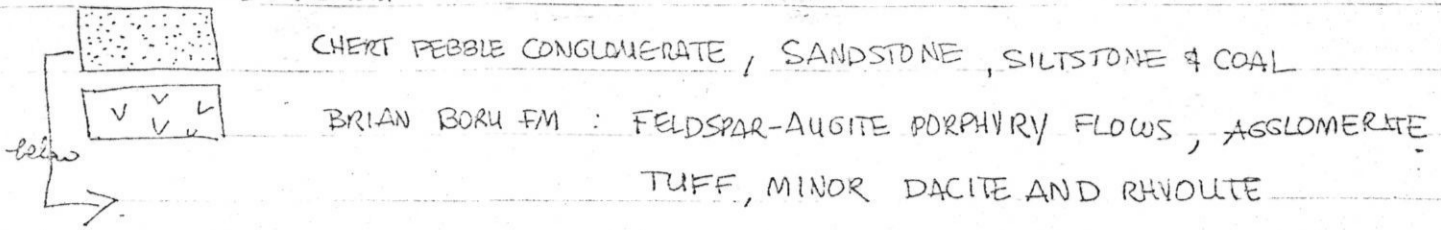 CHERT PEBBLE CONGLOMERATE, SANDSTONE, SILTSTONE & COAL
BRIAN BORU FM : FELDSPAR-AUGITE PORPHYRY FLOWS, AGGLOMERATE
below
TUFF, MINOR DACITE AND RHYOLITE